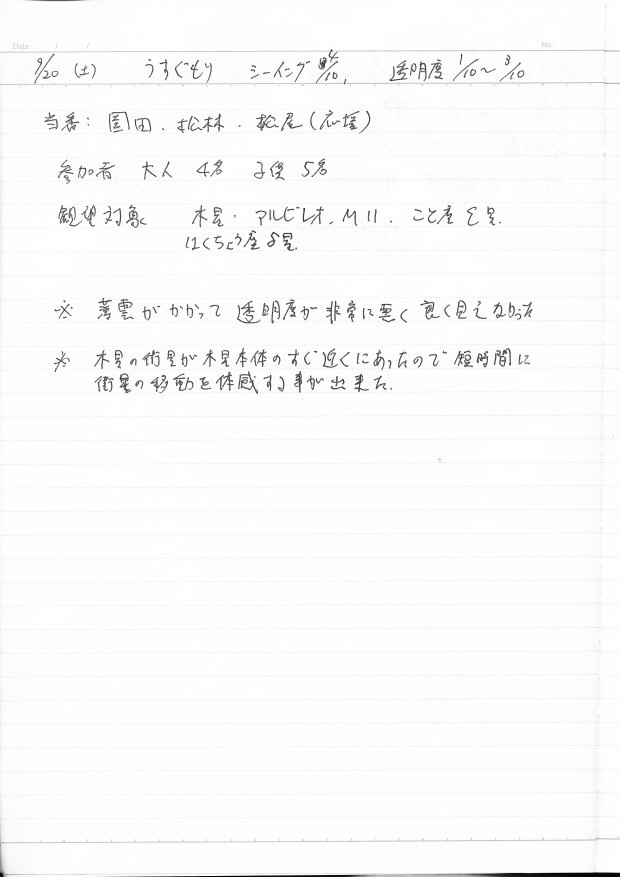 Date / / No.
9/20 (土) うすぐもり シーイング 4/10, 透明度 1/10～3/10
当番: 園田、松林、松尾(応援)
参加者 大人 4名 子供 5名
観望対象 木星、アルビレオ、M11、こと座ε星、
はくちょう座δ星
※ 薄雲がかかって透明度が非常に悪く良く見えなかった
※ 木星の衛星が木星本体のすぐ近くにあったので短時間に
衛星の移動を体感する事が出来た.